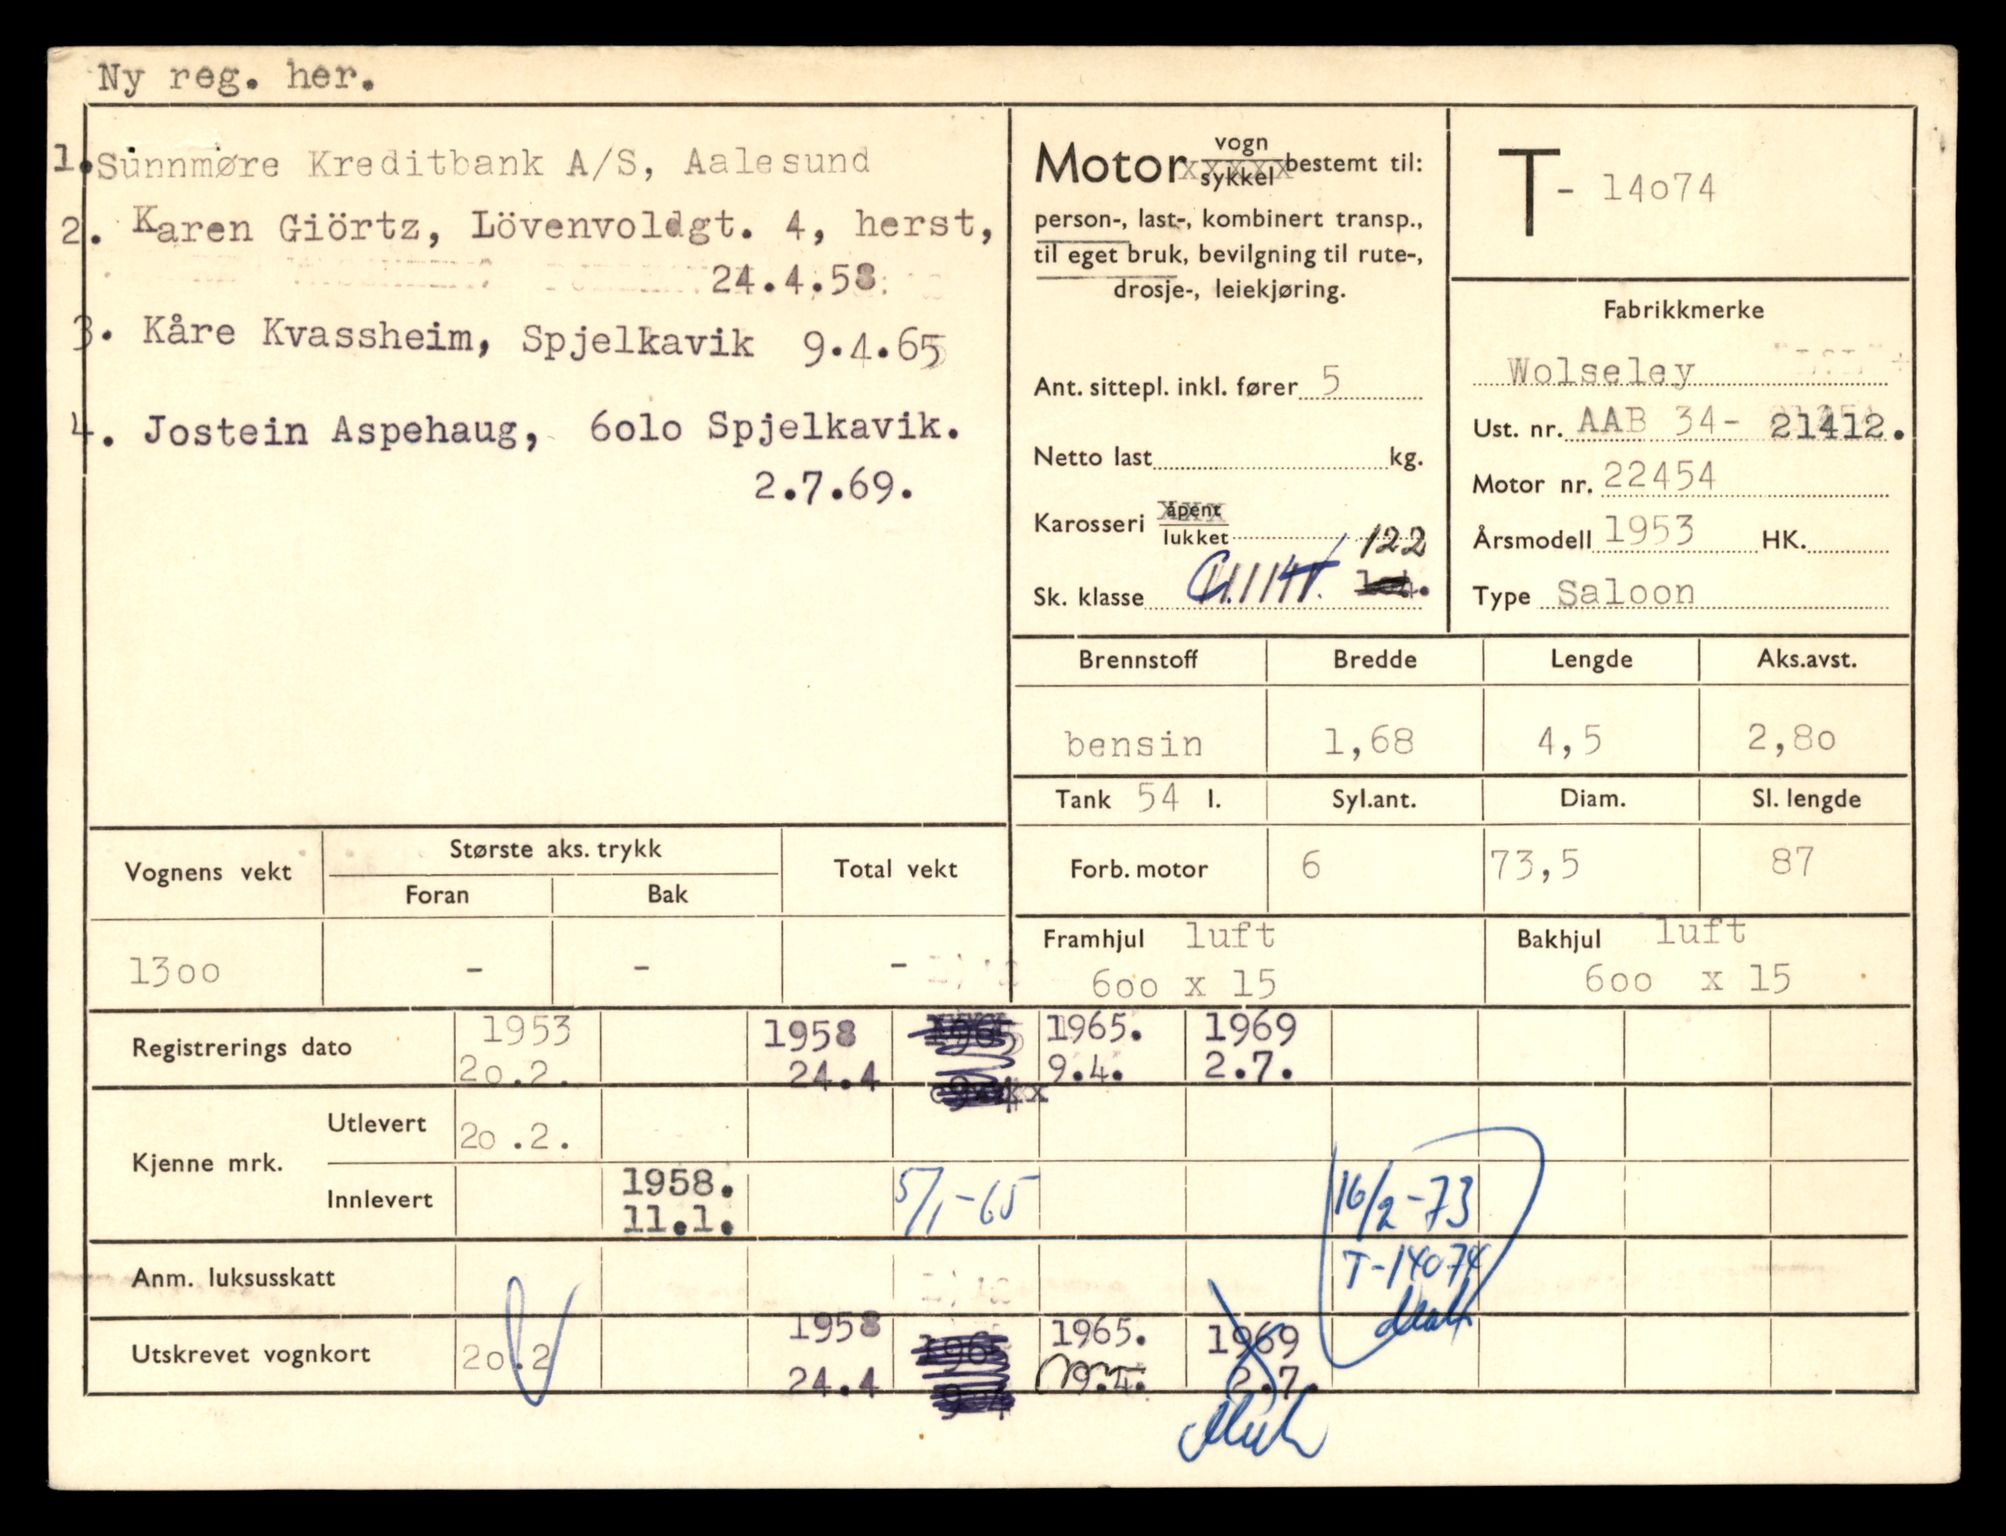 Ny reg. her.
1. Sunnmøre Kreditbank A/S, Aalesund
2. Karen Giörtz, Lövenvoldgt. 4, herst,
24.4.58
3. Kåre Kvassheim, Spjelkavik 9.4.65
4. Jostein Aspehaug, 6olo Spjelkavik.
2.7.69.
Motor vogn sykkel bestemt til:
person-, last-, kombinert transp.,
til eget bruk, bevilgning til rute-,
drosje-, leiekjøring.
Ant. sittepl. inkl. fører 5
Netto last kg.
Karosseri åpent lukket 122
Sk. klasse
T - 14o74
Fabrikkmerke
Wolseley
Ust. nr. AAB 34- 21412.
Motor nr. 22454
Årsmodell 1953 HK.
Type Saloon
Brennstoff Bredde Lengde Aks.avst.
bensin 1,68 4,5 2,8o
Tank 54 l. Syl.ant. Diam. Sl. lengde
Forb. motor 6 73,5 87
Framhjul luft Bakhjul luft
6oo x 15 6oo x 15
Vognens vekt Største aks. trykk Total vekt
Foran Bak
13oo - - -
Registrerings dato 1953 1958 1965 1965. 1969
2o.2. 24.4 9.4 9.4. 2.7.
Kjenne mrk. Utlevert 2o.2.
Innlevert 1958. 5/1-65 16/2-73
11.1.
T-14074
Anm. luksusskatt
Utskrevet vognkort 2o.2 1958 1965 1965. 1969
24.4 9.4 9.4. 2.7.